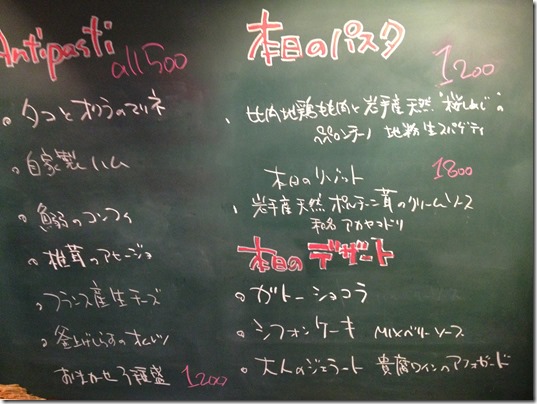 Antipasti
all 500
・タコとオクラのマリネ
・自家製ハム
・鰯のコンフィ
・椎茸のアヒージョ
・フランス産生チーズ
・釜上げしらすの
おまかせ3種盛 1200
本日のパスタ
1200
・比内地鶏もも肉と岩手産天然"桜しめじ"の
ペペロンチーノ 地粉生スパゲティ
本日のリゾット 1800
・岩手産天然ポルチーニ茸のクリームソース
和名アカヤマドリ
本日のデザート
・ガトーショコラ
・シフォンケーキ MIXベリーソース
・大人のジェラート 貴腐ワインのアフォガード